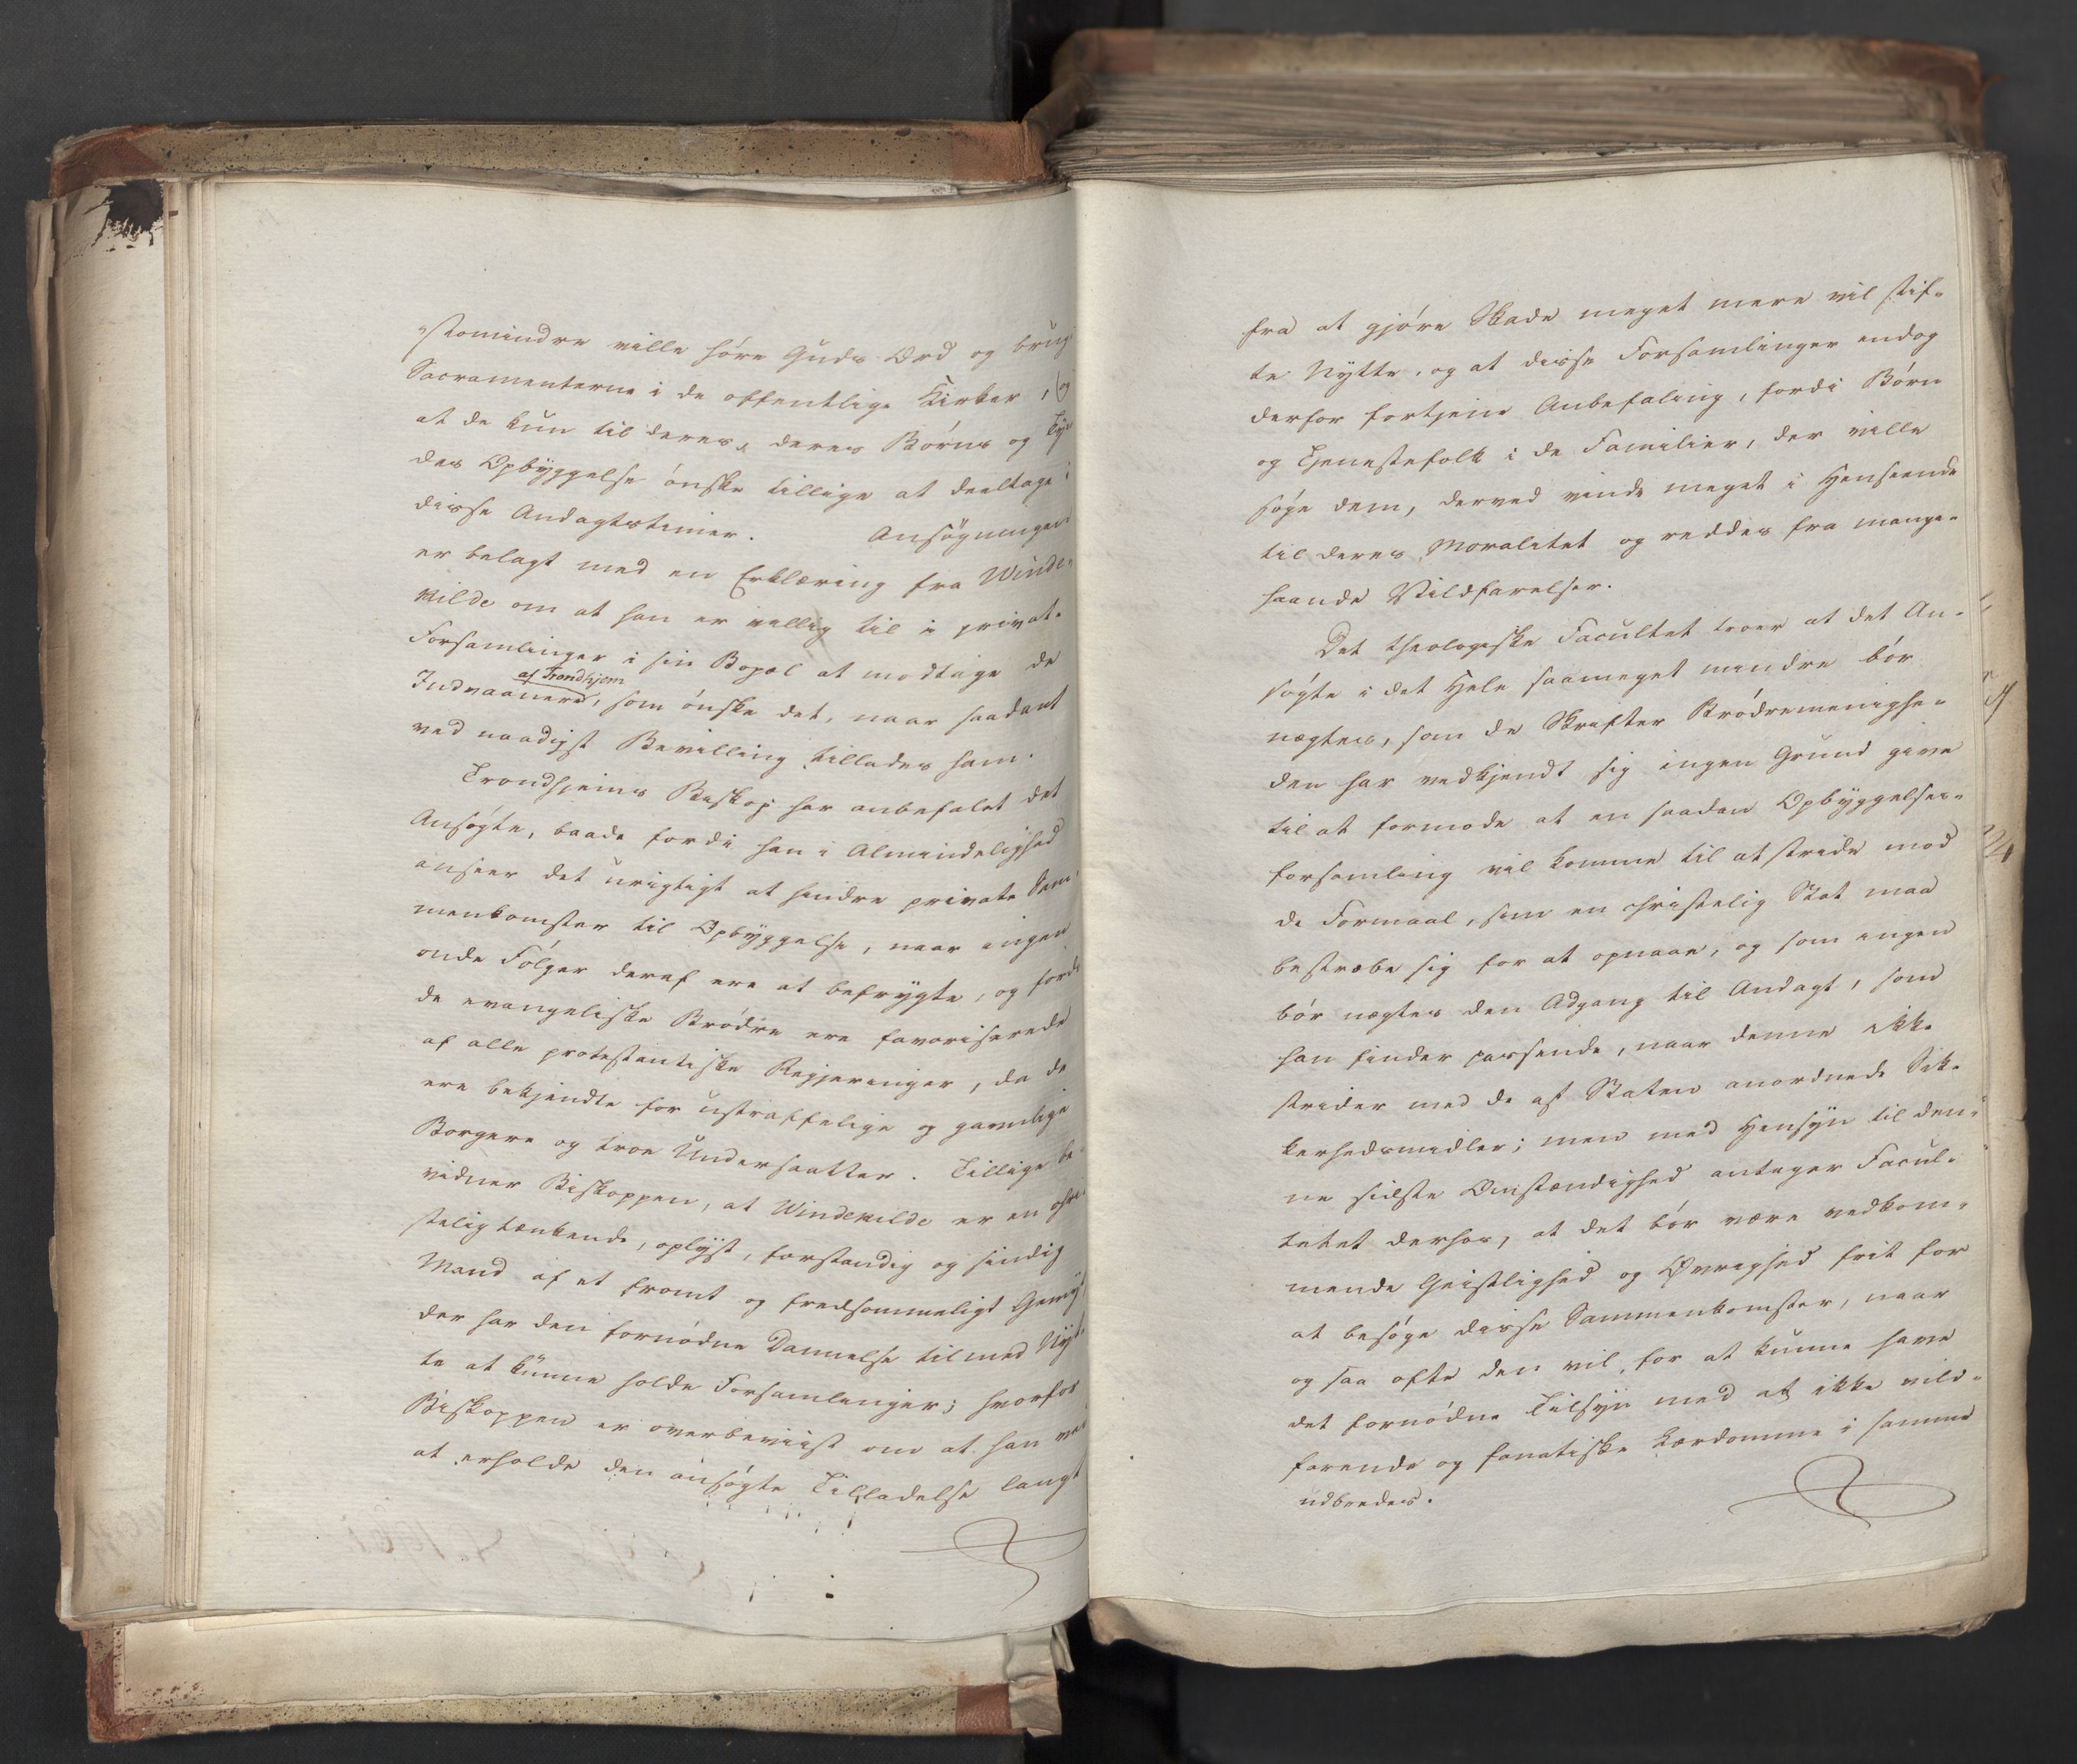 stomindre ville høre Guds Ord og brug
Sacramenterne i de offentlige Kirker, (og
at de kun til deres, deres Børns og Ty
des Opbyggelse ønske tillige at deeltage i
disse Andagtstimer. Ansøgningen
er belagt med en Erklæring fra Winde-
kilde om at han er villig til i privat-
Forsamlinger i sin Bopæl at modtage de
af Trondhjem
Indvaanere, som ønske det, naar saadant
ved naadigst Bevilling tillades ham.
Trondhjems Biskop har anbefalet det
Ansøgte, baade fordi han i Almindelighed
anseer det urigtigt at hindre private Sam-
menkomster til Opbyggelse, naar ingen
onde Følger deraf ere at befrygte, og fordi
de evangeliske Brødre ere favoriserede
af alle protestantiske Regjeringer, da de
ere bekjendte for ustraffelige og gavnlige
Borgere og troe Undersaatter. Tillige be-
vidner Biskoppen, at Windekilde er en chri-
stelig tænkende, oplyst, forstandig og sindig
Mand af et fromt og fredsommeligt Gemyt
der har den fornødne Dannelse til med Nyt-
te at kunne holde Forsamlinger; hvorfor
Biskoppen er overbeviist om at han ved
at erholde den ansøgte Tilladelse langt
fra at gjøre Skade meget mere vil stif-
te Nytte, og at disse Forsamlinger endog
derfor fortjene Anbefaling, fordi Børn
og Tjenestefolk i de Familier, der ville
søge dem, derved vinde meget i Henseende
til deres Moralitet og reddes fra mange-
haande Vildfarelser.
Det theologiske Facultet troer at det An-
søgte i det Hele saameget mindre bør
nægtes, som de Skrifter Brødremenighe-
den har vedkjendt sig ingen Grund give
til at formode at en saadan Opbyggelses-
forsamling vil komme til at stride mod
de Formaal, som en christelig Stat maa
bestræbe sig for at opnaae, og som ingen
bør nægtes den Adgang til Andagt, som
han finder passende, naar denne ikke
strider med de af Staten anordnede Sik-
kerhedsmidler; men med Hensyn til den-
ne sidste Omstændighed antager Facul-
tetet derhos, at det bør være vedkom-
mende Geistlighed og Øvrighed frit for
at besøge disse Sammenkomster, naar
og saa ofte den vil, for at kunne have
det fornødne Tilsyn med at ikke vild-
farende og fanatiske Lærdomme i samme
udbredes.